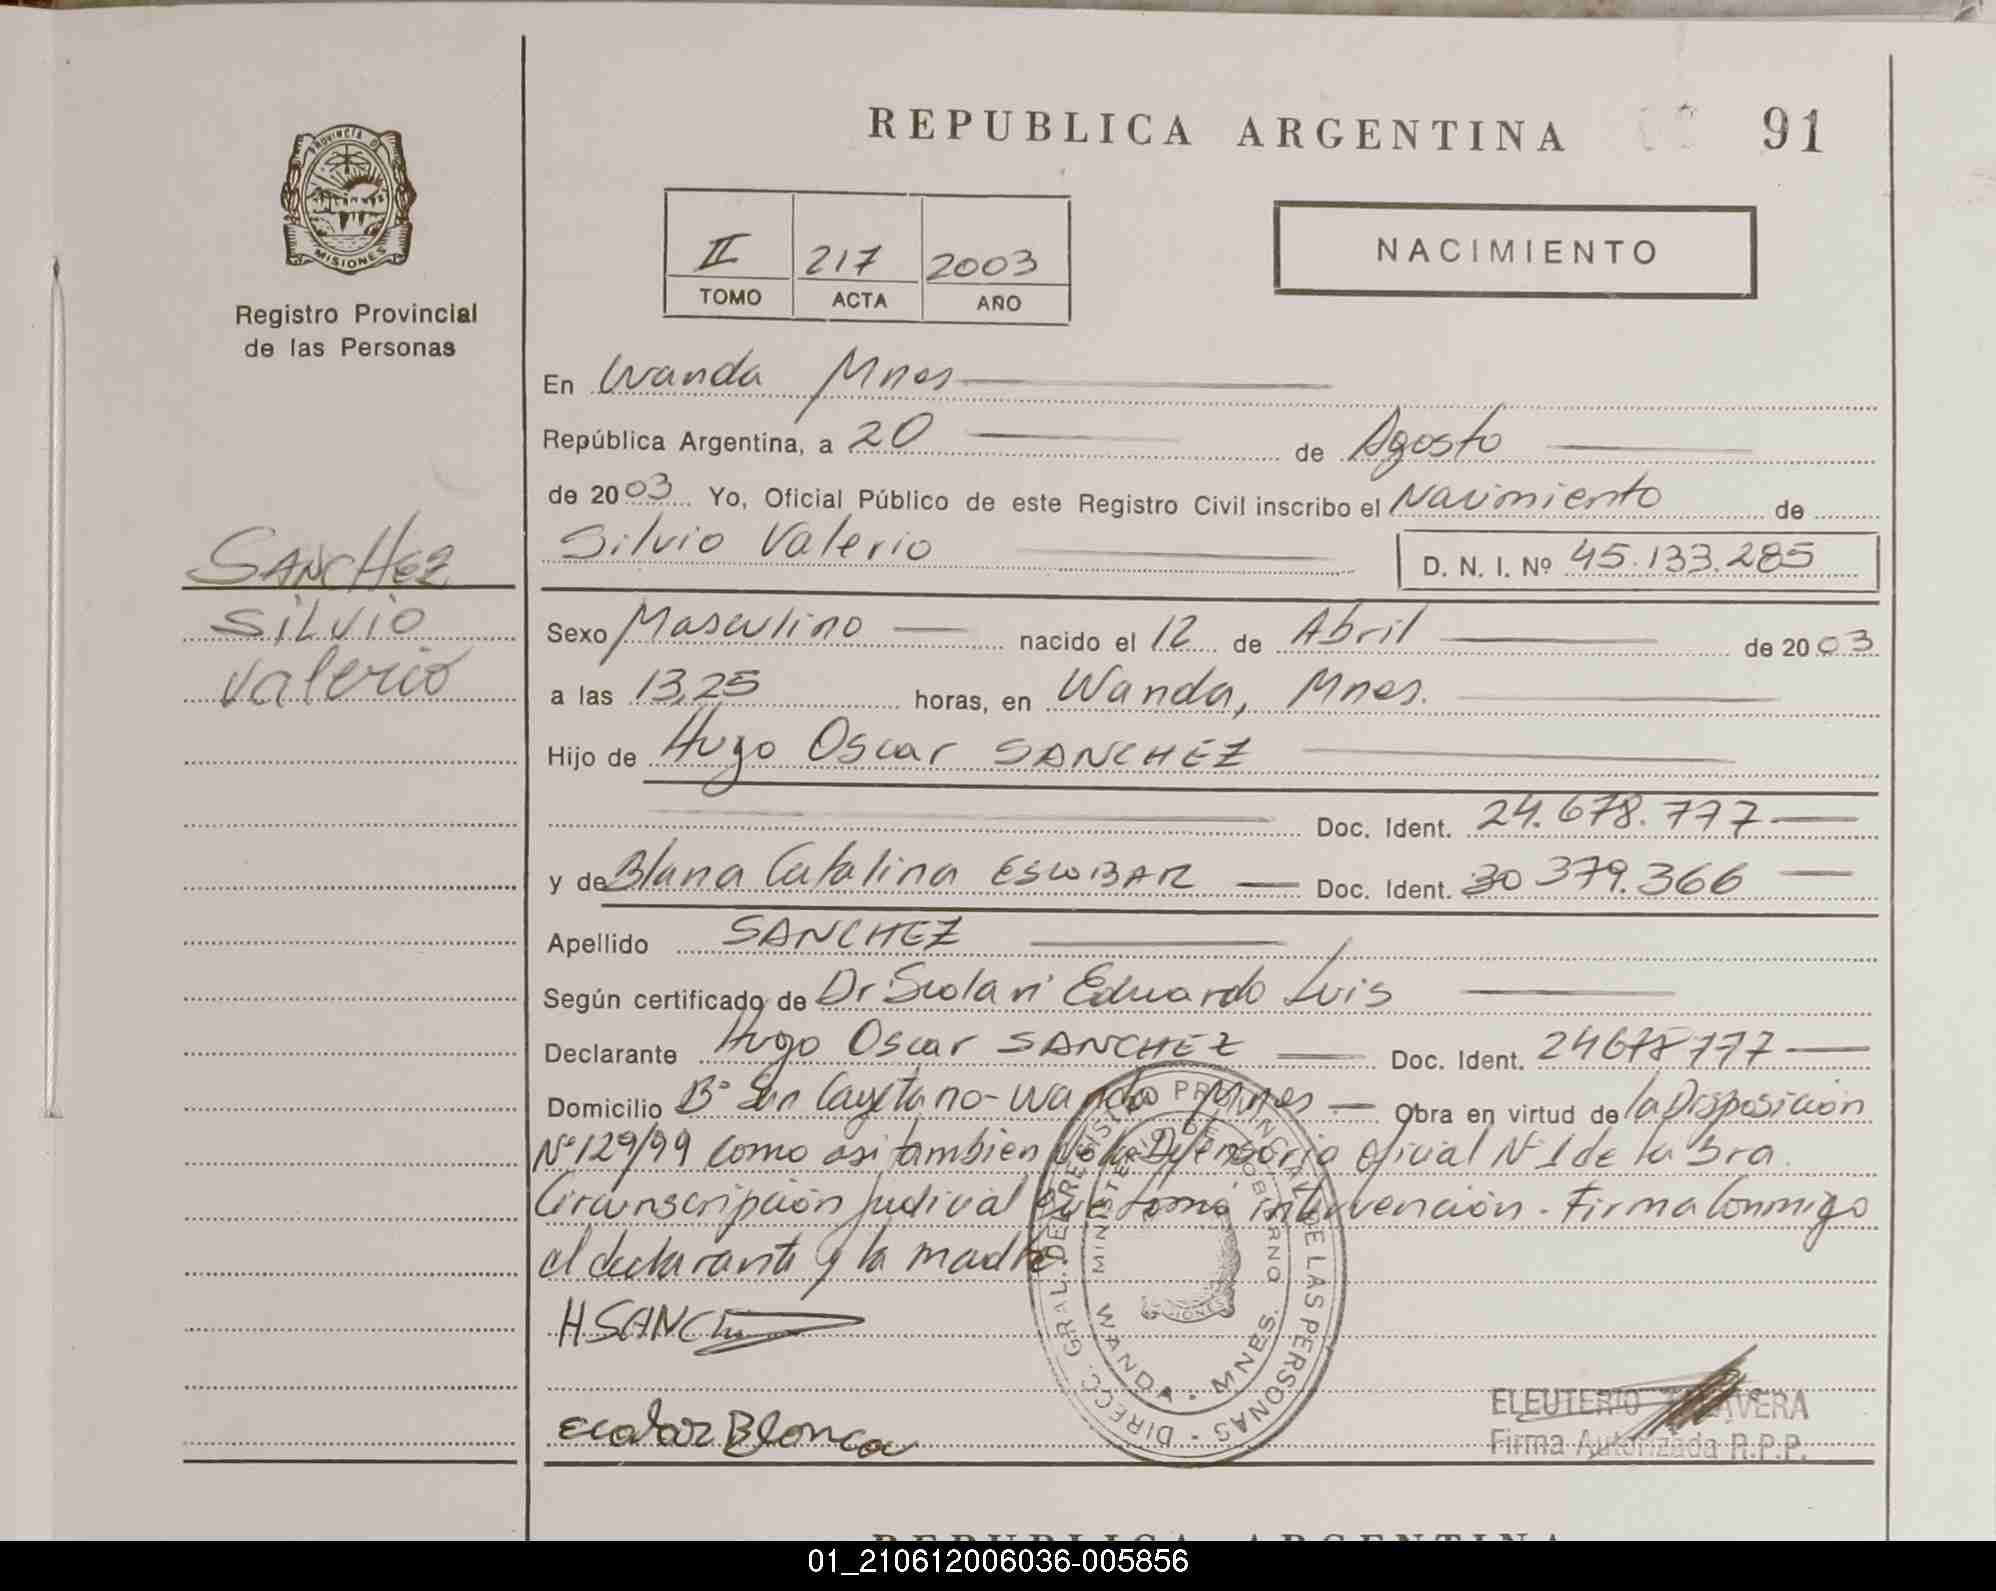 REPUBLICA ARGENTINA 91
PROVINCIA DE
MISIONES
Registro Provincial
de las Personas
II 217 2003
TOMO ACTA AÑO
NACIMIENTO
En Wanda Mnes
República Argentina, a 20 de Agosto
de 2003 Yo, Oficial Público de este Registro Civil inscribo el Nacimiento de
Silvio Valerio D. N. I. Nº 45.133.285
SANCHEZ
Silvio
Valerio
Sexo Masculino nacido el 12 de Abril de 2003
a las 13,25 horas, en Wanda, Mnes.
Hijo de Hugo Oscar SANCHEZ
Doc. Ident. 24.678.777
y de Blanca Catalina ESCOBAR Doc. Ident. 30 379.366
Apellido SANCHEZ
Según certificado de Dr Scolari Eduardo Luis
Declarante Hugo Oscar SANCHEZ Doc. Ident. 24678777
Domicilio Bº San Cayetano-Wanda Mnes Obra en virtud de la Disposición
Nº 129/99 como asi tambien de la Defensoria oficial Nº 1 de la 3ra
Circunscripción Judicial que tomó intervención. Firma Conmigo
el declarante y la madre
H SANCH
Ecobar Blanca
DIRECC. GRAL. DEL REGISTRO PROVINCIAL DE LAS PERSONAS
MINISTERIO DE GOBIERNO
WANDA - MNES.
MISIONES
ELEUTERIO TALAVERA
Firma Autorizada R.P.P.
REPUBLICA ARGENTINA
01_210612006036-005856